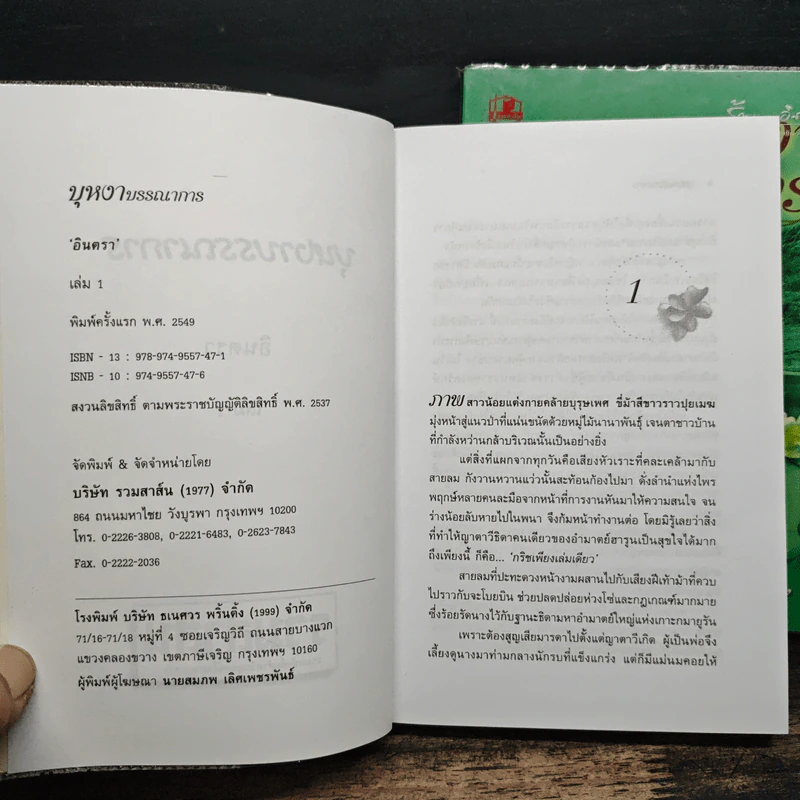 บุหงาบรรณาการ
'อินตรา'
เล่ม 1
พิมพ์ครั้งแรก พ.ศ. 2549
ISBN - 13 : 978-974-9557-47-1
ISNB - 10 : 974-9557-47-6
สงวนลิขสิทธิ์ ตามพระราชบัญญัติลิขสิทธิ์ พ.ศ. 2537
จัดพิมพ์ & จัดจำหน่ายโดย
บริษัท รวมสาส์น (1977) จำกัด
864 ถนนมหาไชย วังบูรพา กรุงเทพฯ 10200
โทร. 0-2226-3808, 0-2221-6483, 0-2623-7843
Fax. 0-2222-2036
โรงพิมพ์ บริษัท ธเนศวร พริ้นติ้ง (1999) จำกัด
71/16-71/18 หมู่ที่ 4 ซอยเจริญวิถี ถนนสายบางแวก
แขวงคลองขวาง เขตภาษีเจริญ กรุงเทพฯ 10160
ผู้พิมพ์ผู้โฆษณา นายสมภพ เลิศเพชรพันธ์
1
ภาพสาวน้อยแต่งกายคล้ายบุรุษเพศ ขี่ม้าสีขาวราวปุยเมฆ
มุ่งหน้าสู่แนวป่าที่แน่นขนัดด้วยหมู่ไม้นานาพันธุ์ เจนตาชาวบ้าน
ที่กำลังหว่านกล้าบริเวณนั้นเป็นอย่างยิ่ง
แต่สิ่งที่แผกจากทุกวันคือเสียงหัวเราะที่คละเคล้ามากับ
สายลม กังวานหวานแว่วนั้นสะท้อนก้องไปมา ดั่งลำนำแห่งไพร
พฤกษ์หลายคนละมือจากหน้าที่การงานหันมาให้ความสนใจ จน
ร่างน้อยลับหายไปในพนา จึงก้มหน้าทำงานต่อ โดยมิรู้เลยว่าสิ่ง
ที่ทำให้ญาตาวีธิดาคนเดียวของอำมาตย์ฮารูนเป็นสุขใจได้มาก
ถึงเพียงนี้ ก็คือ... 'กริชเพียงเล่มเดียว'
สายลมที่ปะทะดวงหน้างามผสานไปกับเสียงฝีเท้าม้าที่ควบ
ไปราวกับจะโบยบิน ช่วยปลดปล่อยห่วงโซ่และกฎเกณฑ์มากมาย
ซึ่งร้อยรัดนางไว้กับฐานะธิดามหาอำมาตย์ใหญ่แห่งเกาะกมายุรัน
เพราะต้องสูญเสียมารดาไปตั้งแต่ญาตาวีเกิด ผู้เป็นพ่อจึง
เลี้ยงดูนางมาท่ามกลางนักรบที่แข็งแกร่ง แต่ก็มีแม่นมคอยให้